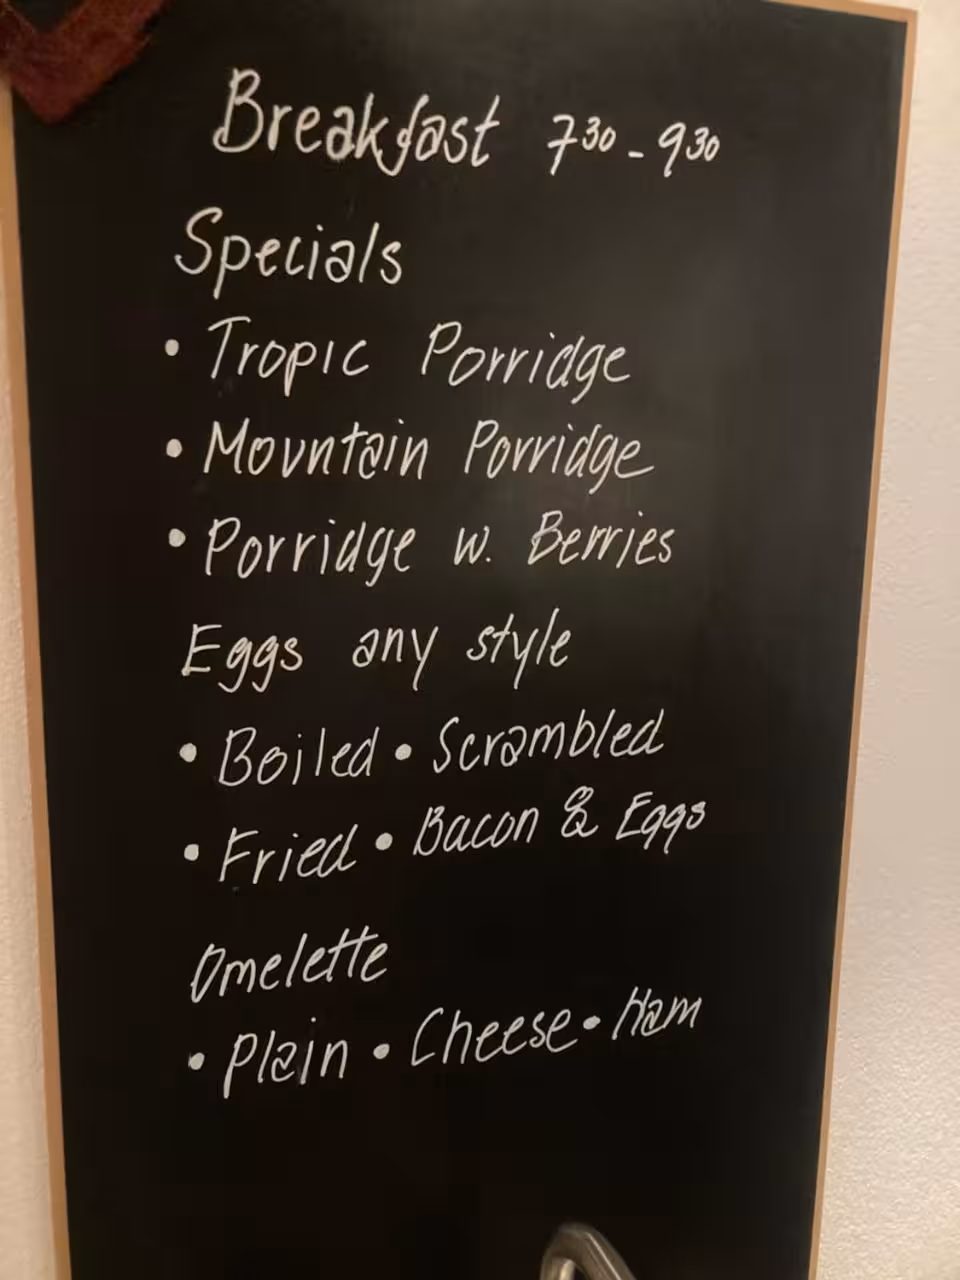 Breakfast 7³⁰ - 9³⁰
Specials
• Tropic Porridge
• Mountain Porridge
• Porridge w. Berries
Eggs any style
• Boiled • Scrambled
• Fried • Bacon & Eggs
Omelette
• Plain • Cheese • Ham